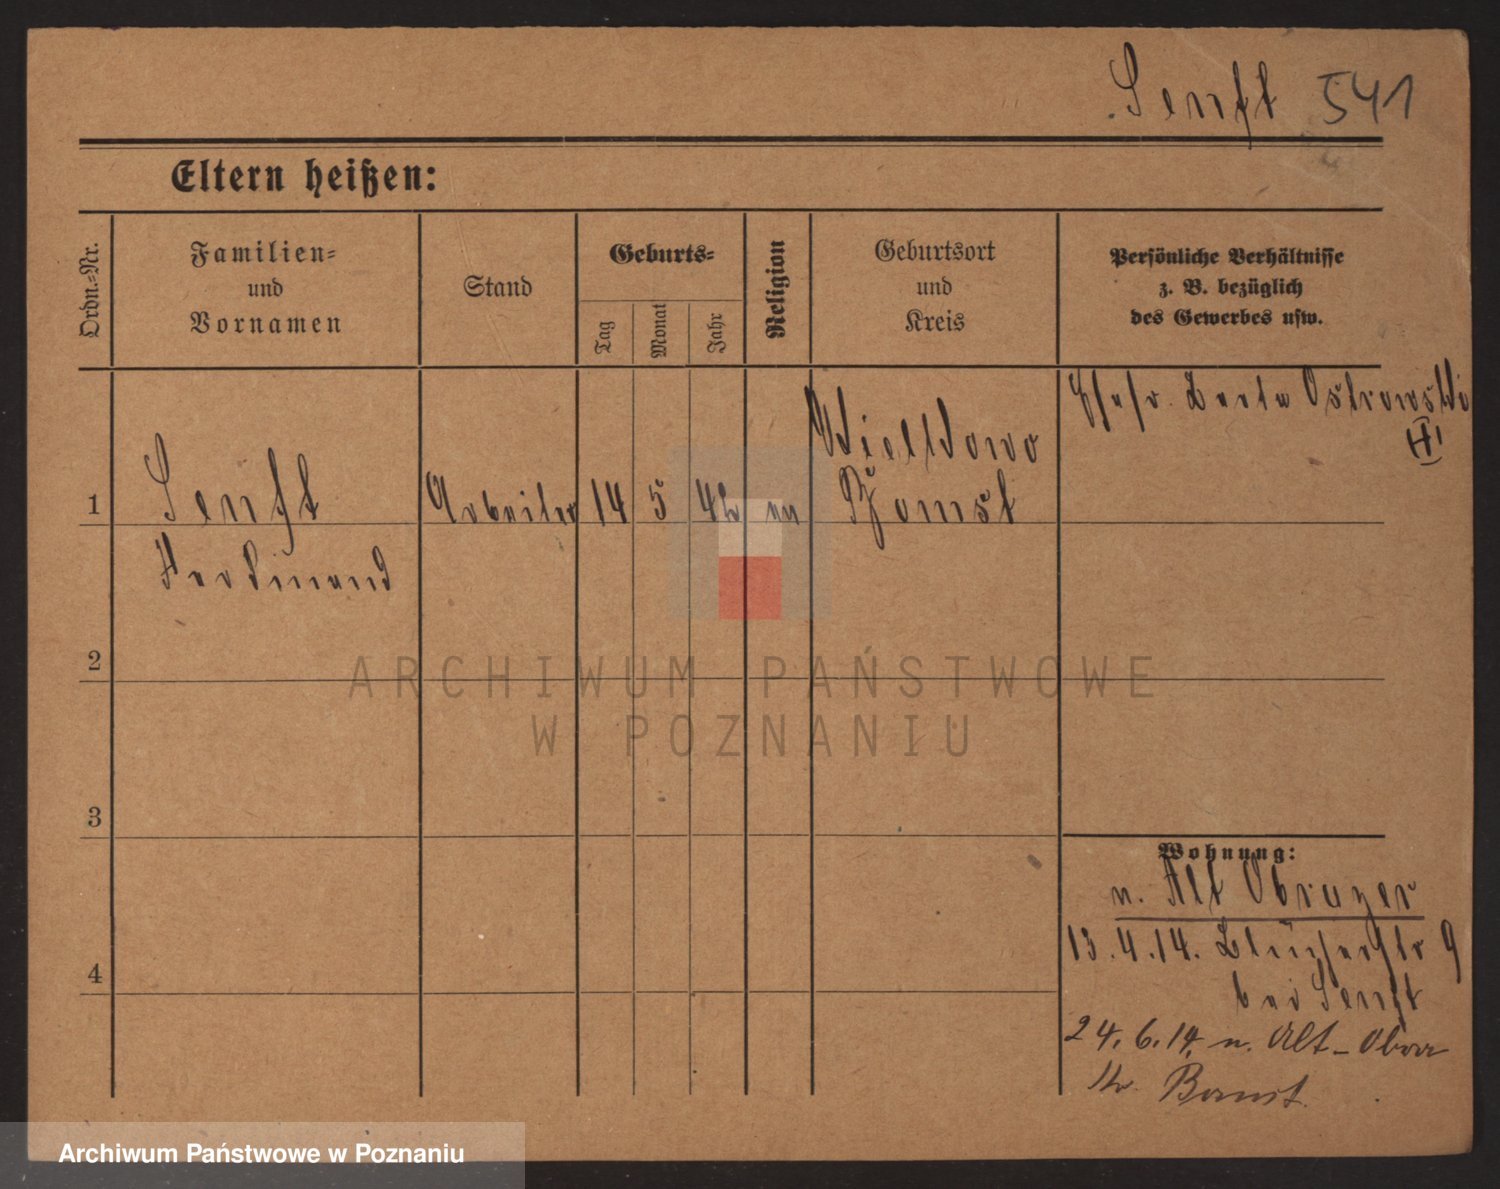 Senft 541
Eltern heißen:
Ordn.-Nr.
Familien-
und
Vornamen
Stand
Geburts-
Tag
Monat
Jahr
Religion
Geburtsort
und
Kreis
Persönliche Verhältnisse
z. B. bezüglich
des Gewerbes usw.
1
Senft
Ferdinand
Arbeiter
14
5
42
Bomst
Ostrowski
III
2
3
4
Wohnung:
n. Alt Obra
13.4.14. Blücherstr 9
bei Senft
24.6.14. n. Alt-Obra
Kr. Bomst.
ARCHIWUM PAŃSTWOWE
W POZNANIU
Archiwum Państwowe w Poznaniu